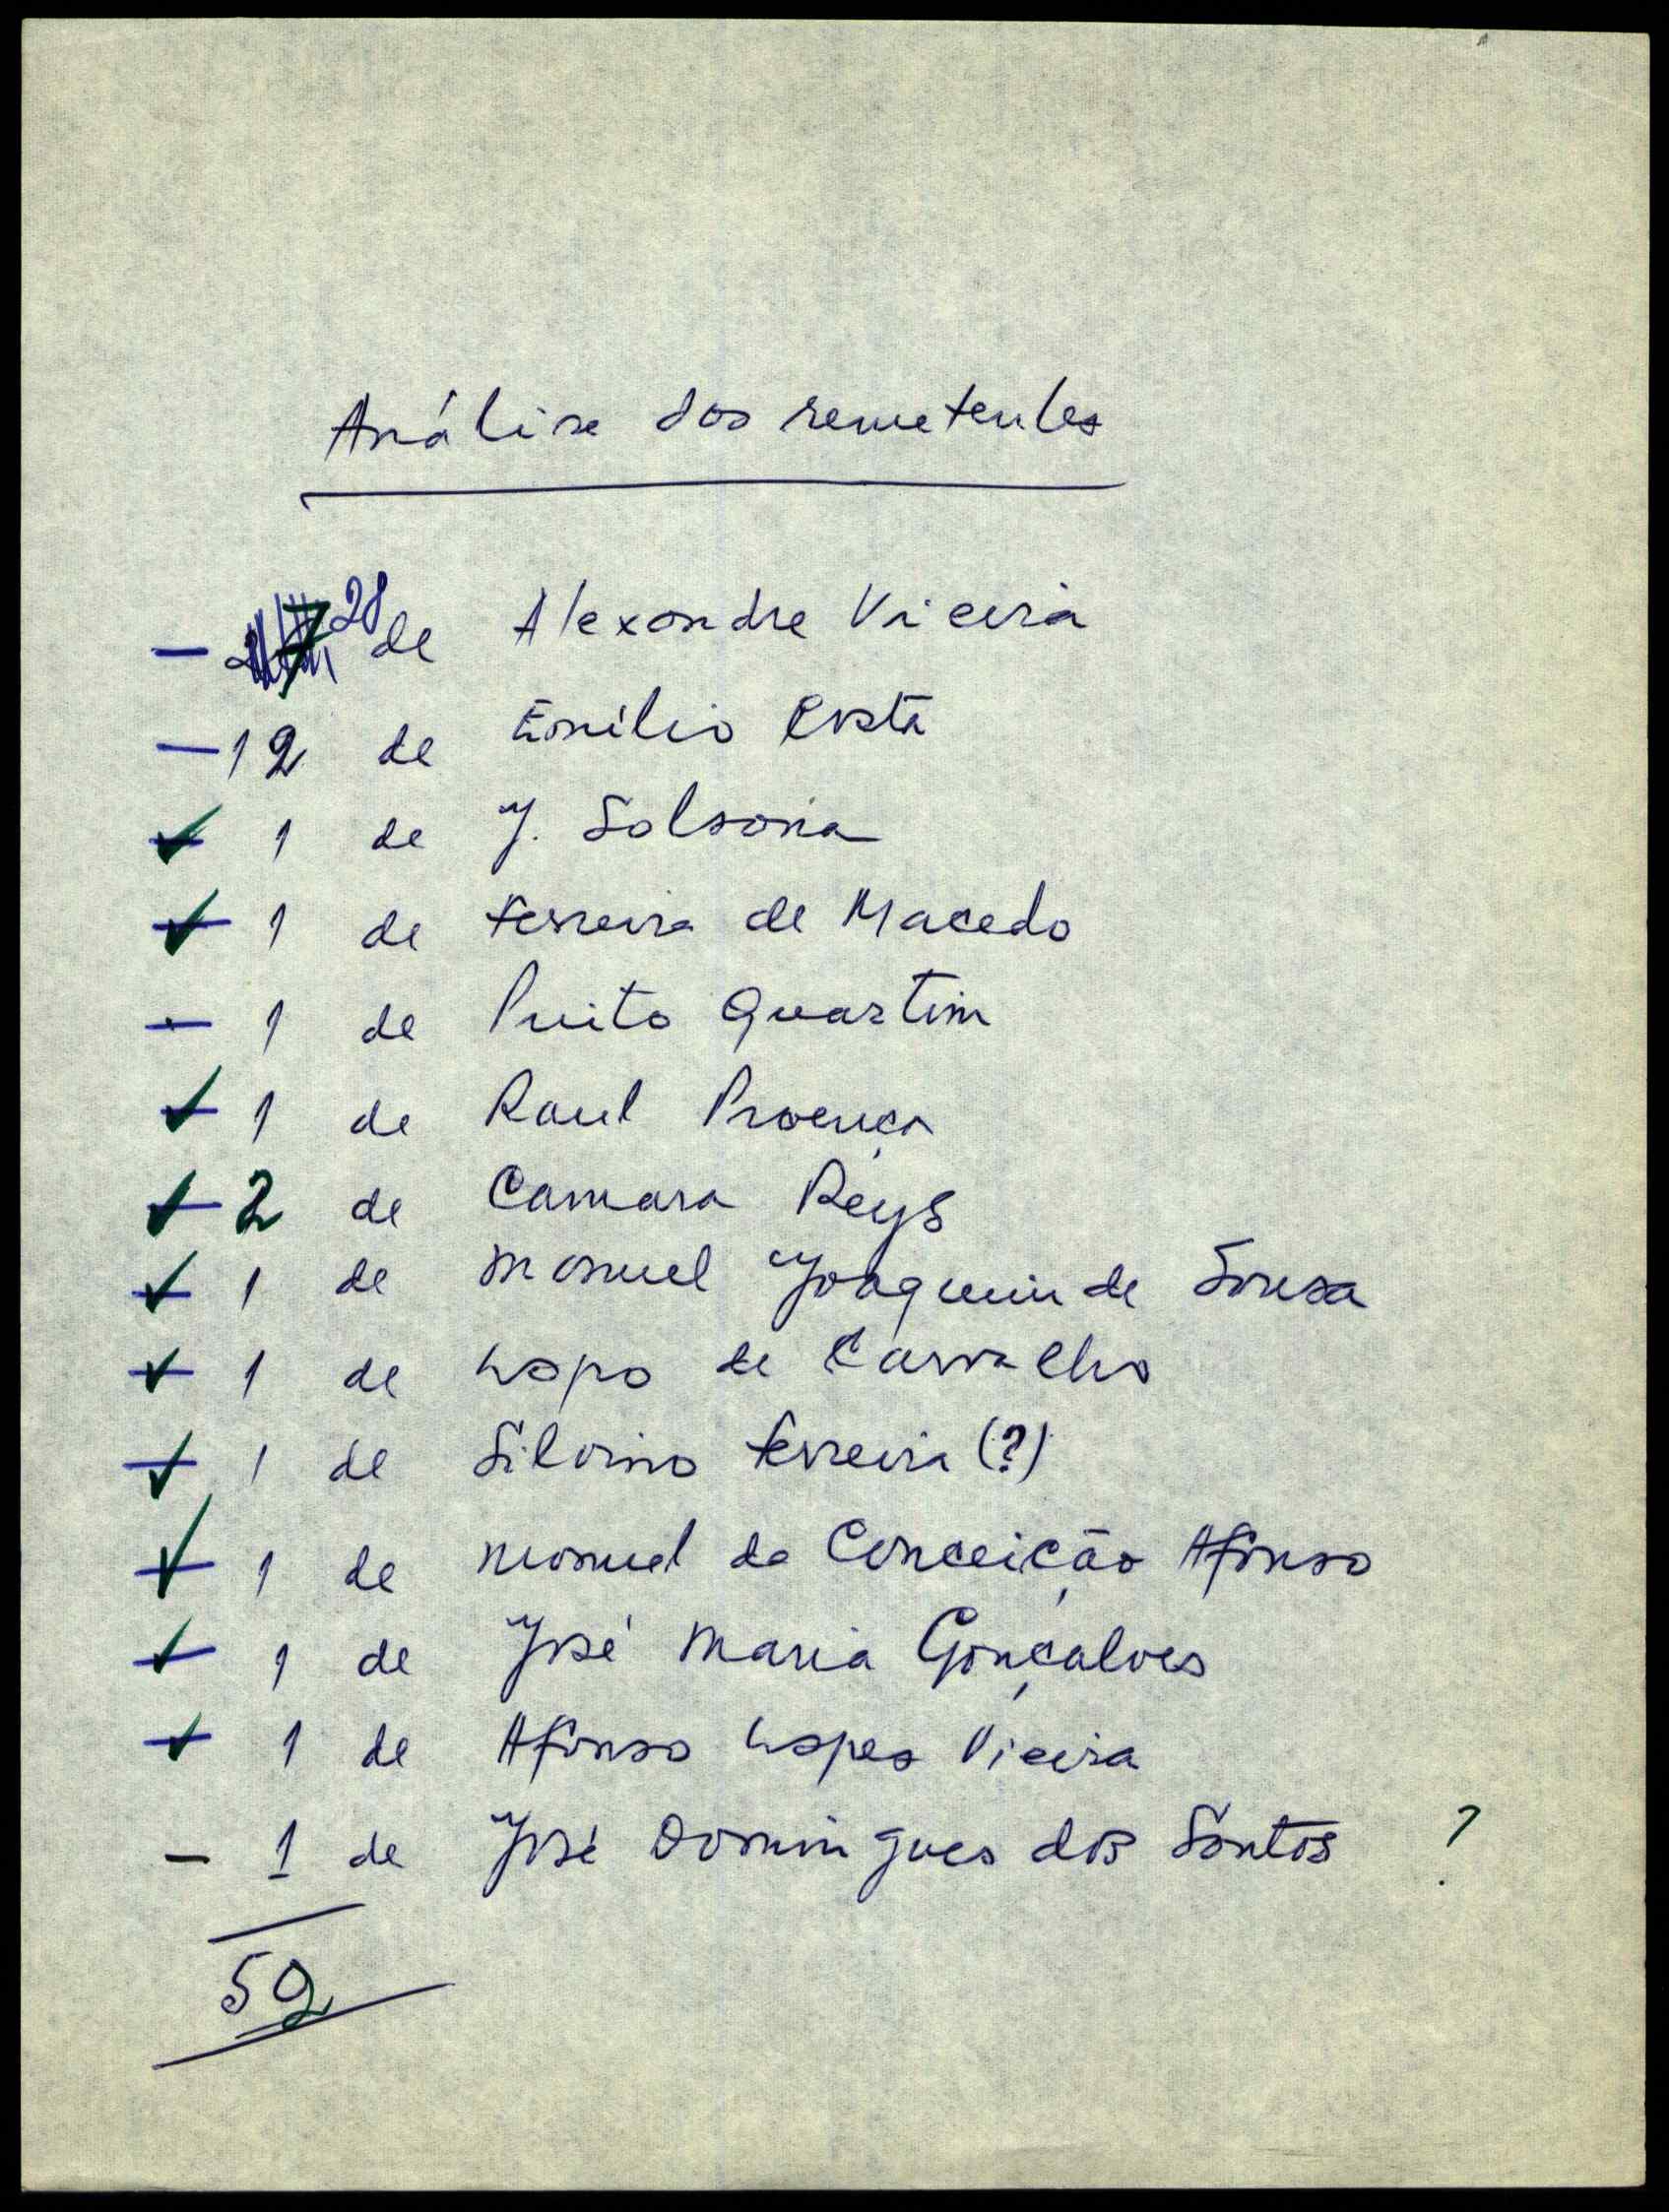 Análise dos remetentes
- 28 de Alexandre Vieira
- 12 de Emílio Costa
✓ 1 de J. Solsona
✓ 1 de Ferreira de Macedo
- 1 de Pinto Quartim
✓ 1 de Raul Proença
✓ 2 de Camara Reys
✓ 1 de Manuel Joaquim de Sousa
✓ 1 de Lopo de Carvalho
✓ 1 de Silvino Ferreira (?)
✓ 1 de Manuel da Conceição Afonso
✓ 1 de José Maria Gonçalves
✓ 1 de Afonso Lopes Vieira
- 1 de José Domingues dos Santos ?
52